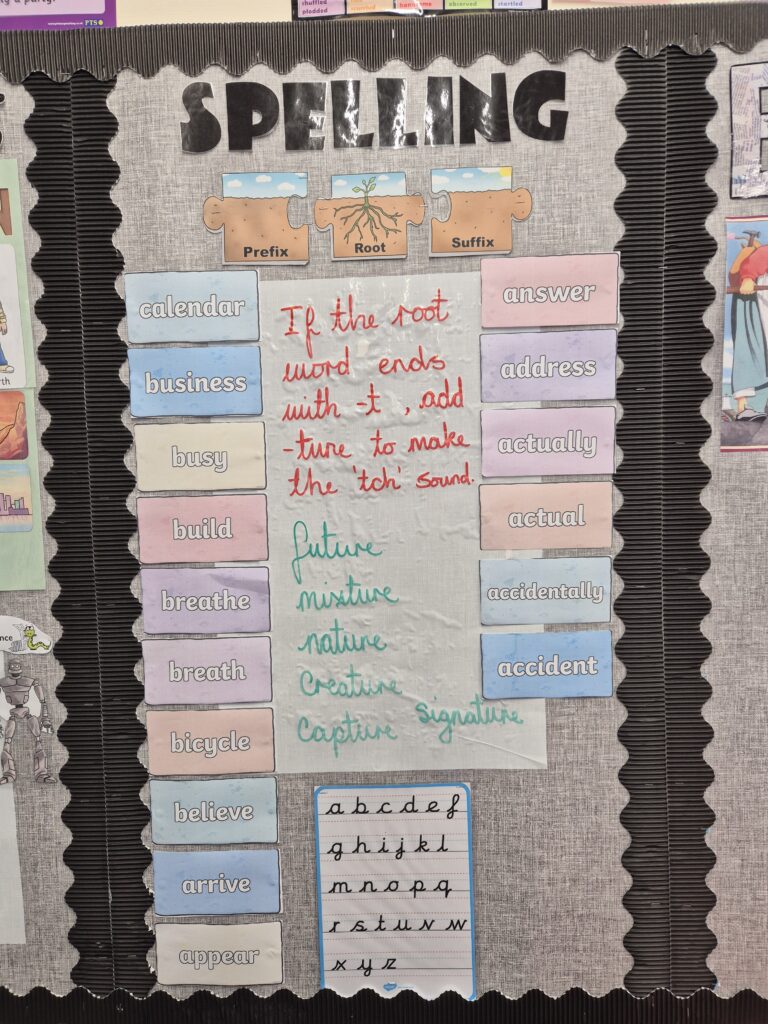 g a party!
PTS
shuffled
plodded
handsome
observed
startled
SPELLING
Prefix
Root
Suffix
calendar
business
busy
build
breathe
breath
bicycle
believe
arrive
appear
If the root
word ends
with -t , add
-ture to make
the 'tch' sound.
future
mixture
nature
Creature
Capture signature
answer
address
actually
actual
accidentally
accident
a b c d e f
g h i j k l
m n o p q
r s t u v w
x y z
rth
nce